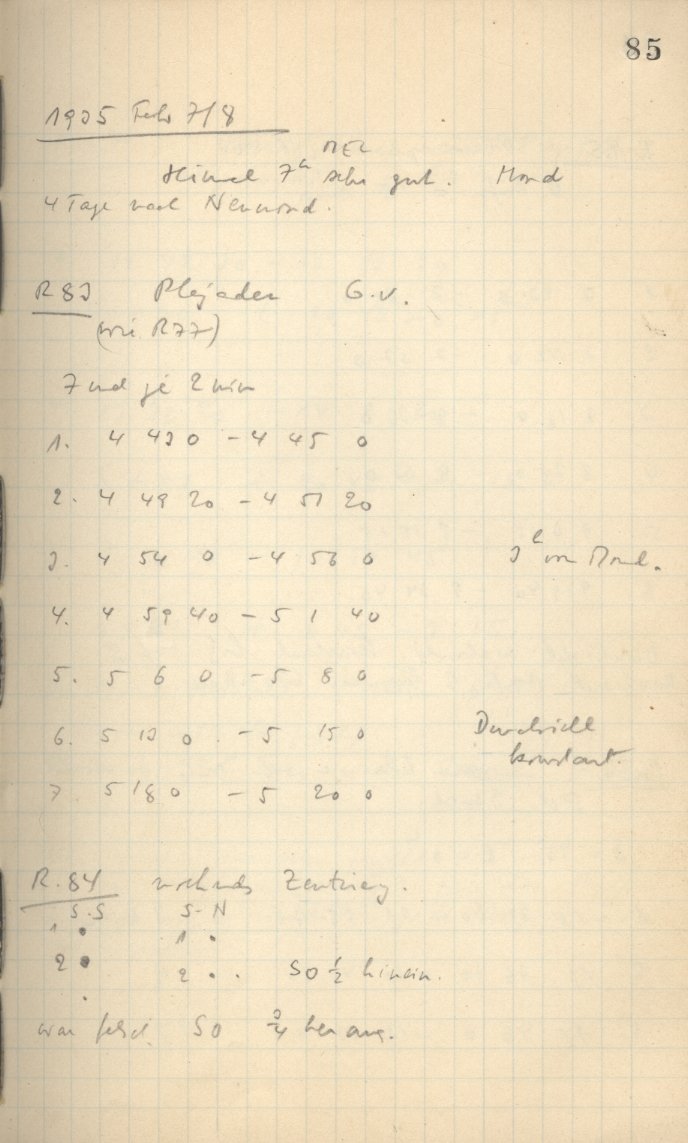 85
1935 Feb 7/8
MEZ
Himmel 7h sehr gut. Mond
4 Tage nach Neumond.
R83 Plejaden G.V.
(wie R77)
7 mal je 2 min
1. 4 43 0 - 4 45 0
2. 4 49 20 - 4 51 20
3. 4 54 0 - 4 56 0
3h vor Mond.
4. 4 59 40 - 5 1 40
5. 5 6 0 - 5 8 0
6. 5 13 0 - 5 15 0
Durchsicht
konstant.
7. 5 18 0 - 5 20 0
R.84 nochmals Zentrierg.
S-S S-N
1 1
2 2 SO ½ hinein.
war falsch. SO ¾ heraus.